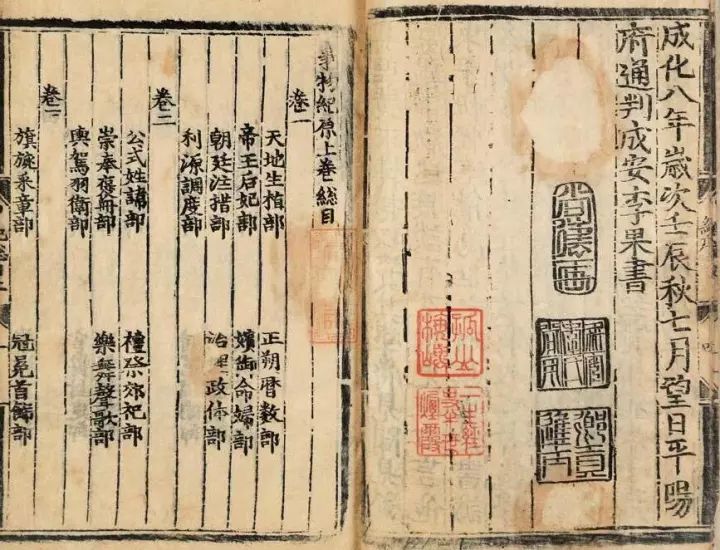 成化八年歲次壬辰秋七月望日平陽
府通判成安李果書
事物紀原上卷總目
卷一
天地生植部 正朔暦數部
帝王后妃部 嬪御命婦部
朝廷注措部 治理政体部
利源調度部
卷二
公式姓諱部 禋祭郊祀部
崇奉褒冊部 樂舞聲歌部
輿駕羽衛部
旗旐采章部 冠冕首飾部